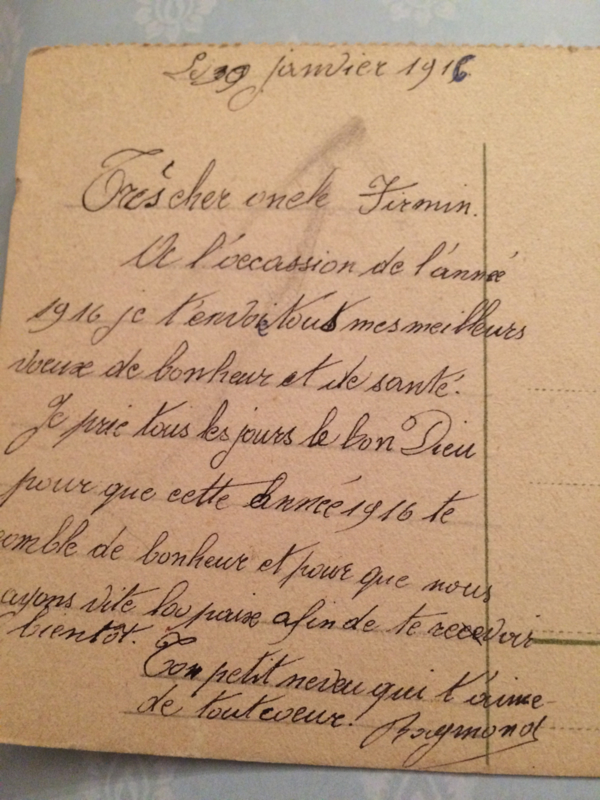 Le 29 janvier 1916
Très cher oncle Firmin.
A l'occassion de l'année
1916 je t'envoie tous mes meilleurs
voeux de bonheur et de santé.
Je prie tous les jours le bon Dieu
pour que cette année 1916 te
comble de bonheur et pour que nous
ayons vite la paix afin de te recevoir
bientôt.
Ton petit neveu qui t'aime
de tout coeur. Raymond